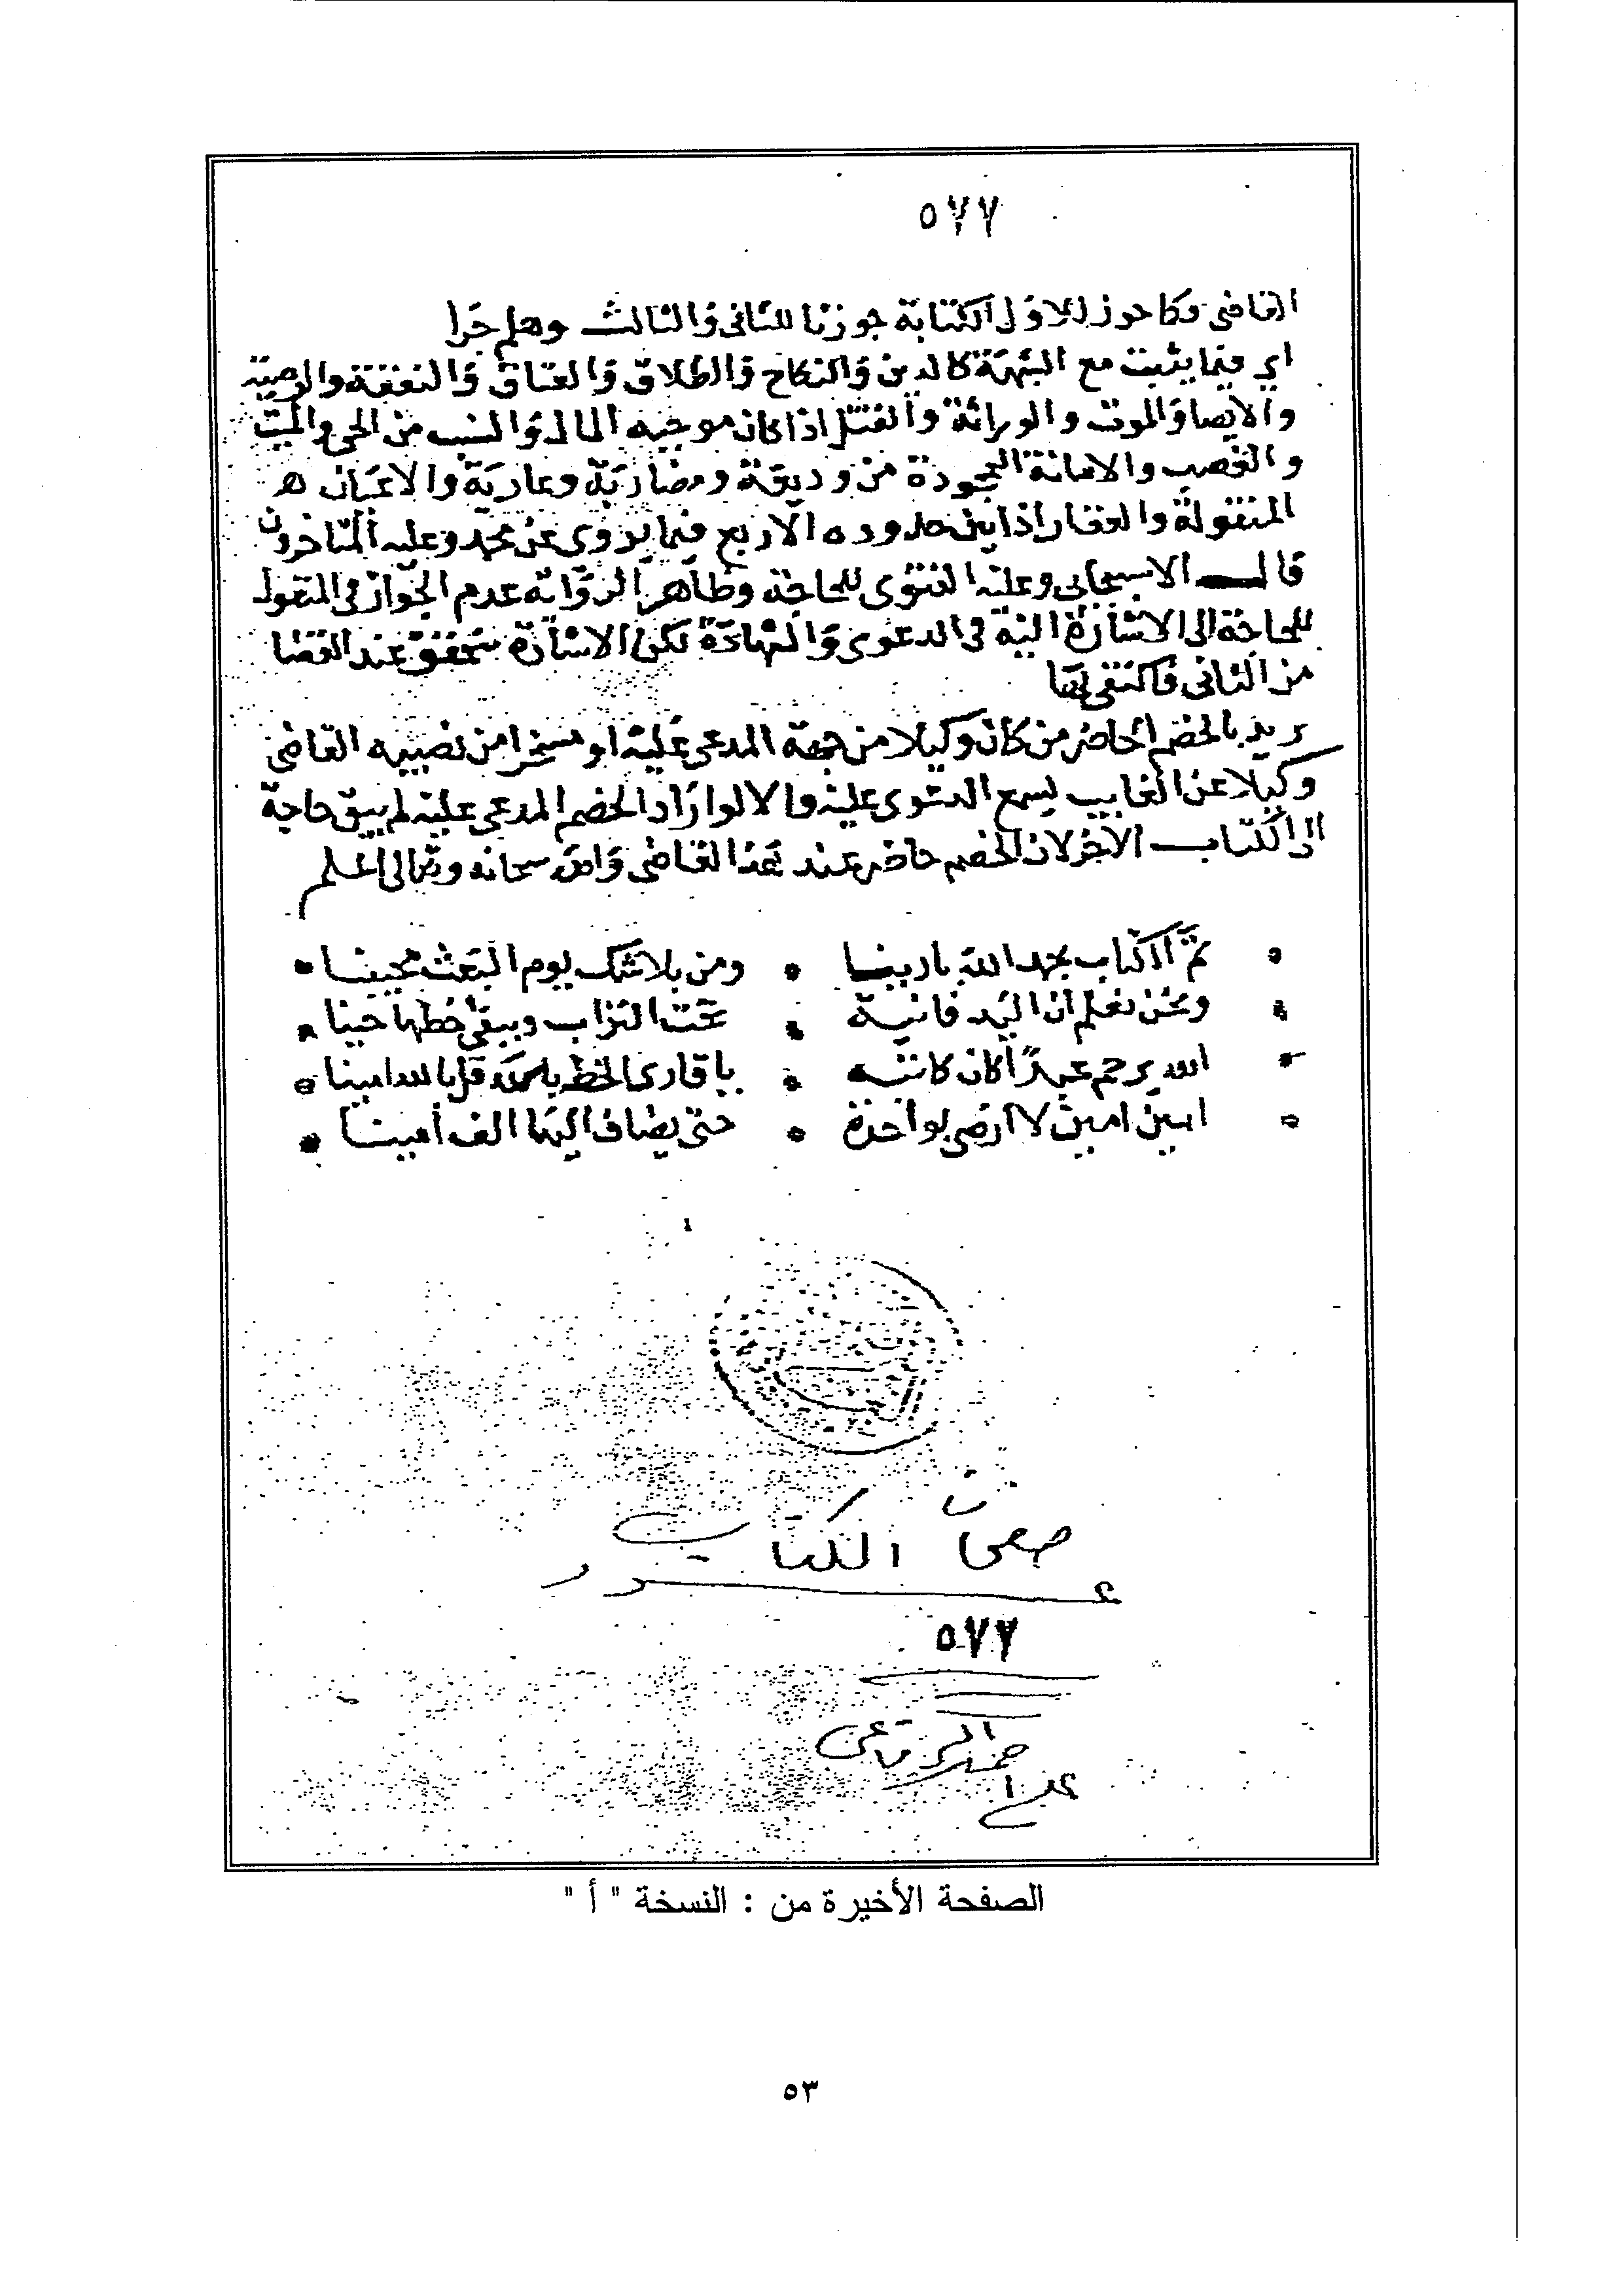 ٥٧٧
القاضي وكما جوز للاول الكتابة جوزنا للثاني والثالث وهلم جرا
اي فيما يثبت مع الشبهة كالدين والنكاح والطلاق والعتاق والنفقة والوصية
والايصا والموت والوراثة والقتل اذا كان موجبه المال والنسب من الحي والميت
والغصب والامانة المجحودة من وديعة ومضاربة وعارية والاعيان
المنقولة والعقار اذا بين حدوده الاربع فيما يروى عن محمد وعليه المتاخرون
قال الاسبيجابي وعليه الفتوى للحاجة وظاهر الرواية عدم الجواز في المنقول
للحاجة الى الاشارة اليه في الدعوى والشهادة لكن الاشارة تتحقق عند القضا
من الثاني فاكتفي بها
يريد بالخصم الحاضر من كان وكيلا من جهة المدعى عليه او مسخرا من نصيبه القاضي
وكيلا عن الغايب ليسمع الدعوى عليه والا لو اراد الخصم المدعى عليه لم يبق حاجة
الى الكتاب الاخر لان الخصم حاضر عند هذا القاضي والله سبحانه وتعالى اعلم
تم الكتاب بحمد الله بارينا • ومن بلا شك يوم البعث محيينا
ونحن نعلم ان اليد فانية • تحت التراب ويبقى خطها حينا
الله يرحم عبدا كان كاتبه • يا قاري الخط بالله قل بالله امينا
امين امين لا ارضى بواحدة • حتى يضاف اليها الف امينا
صفحات الكتاب
عدد
٥٧٧
الصفحة الأخيرة من : النسخة " أ "
٥٣